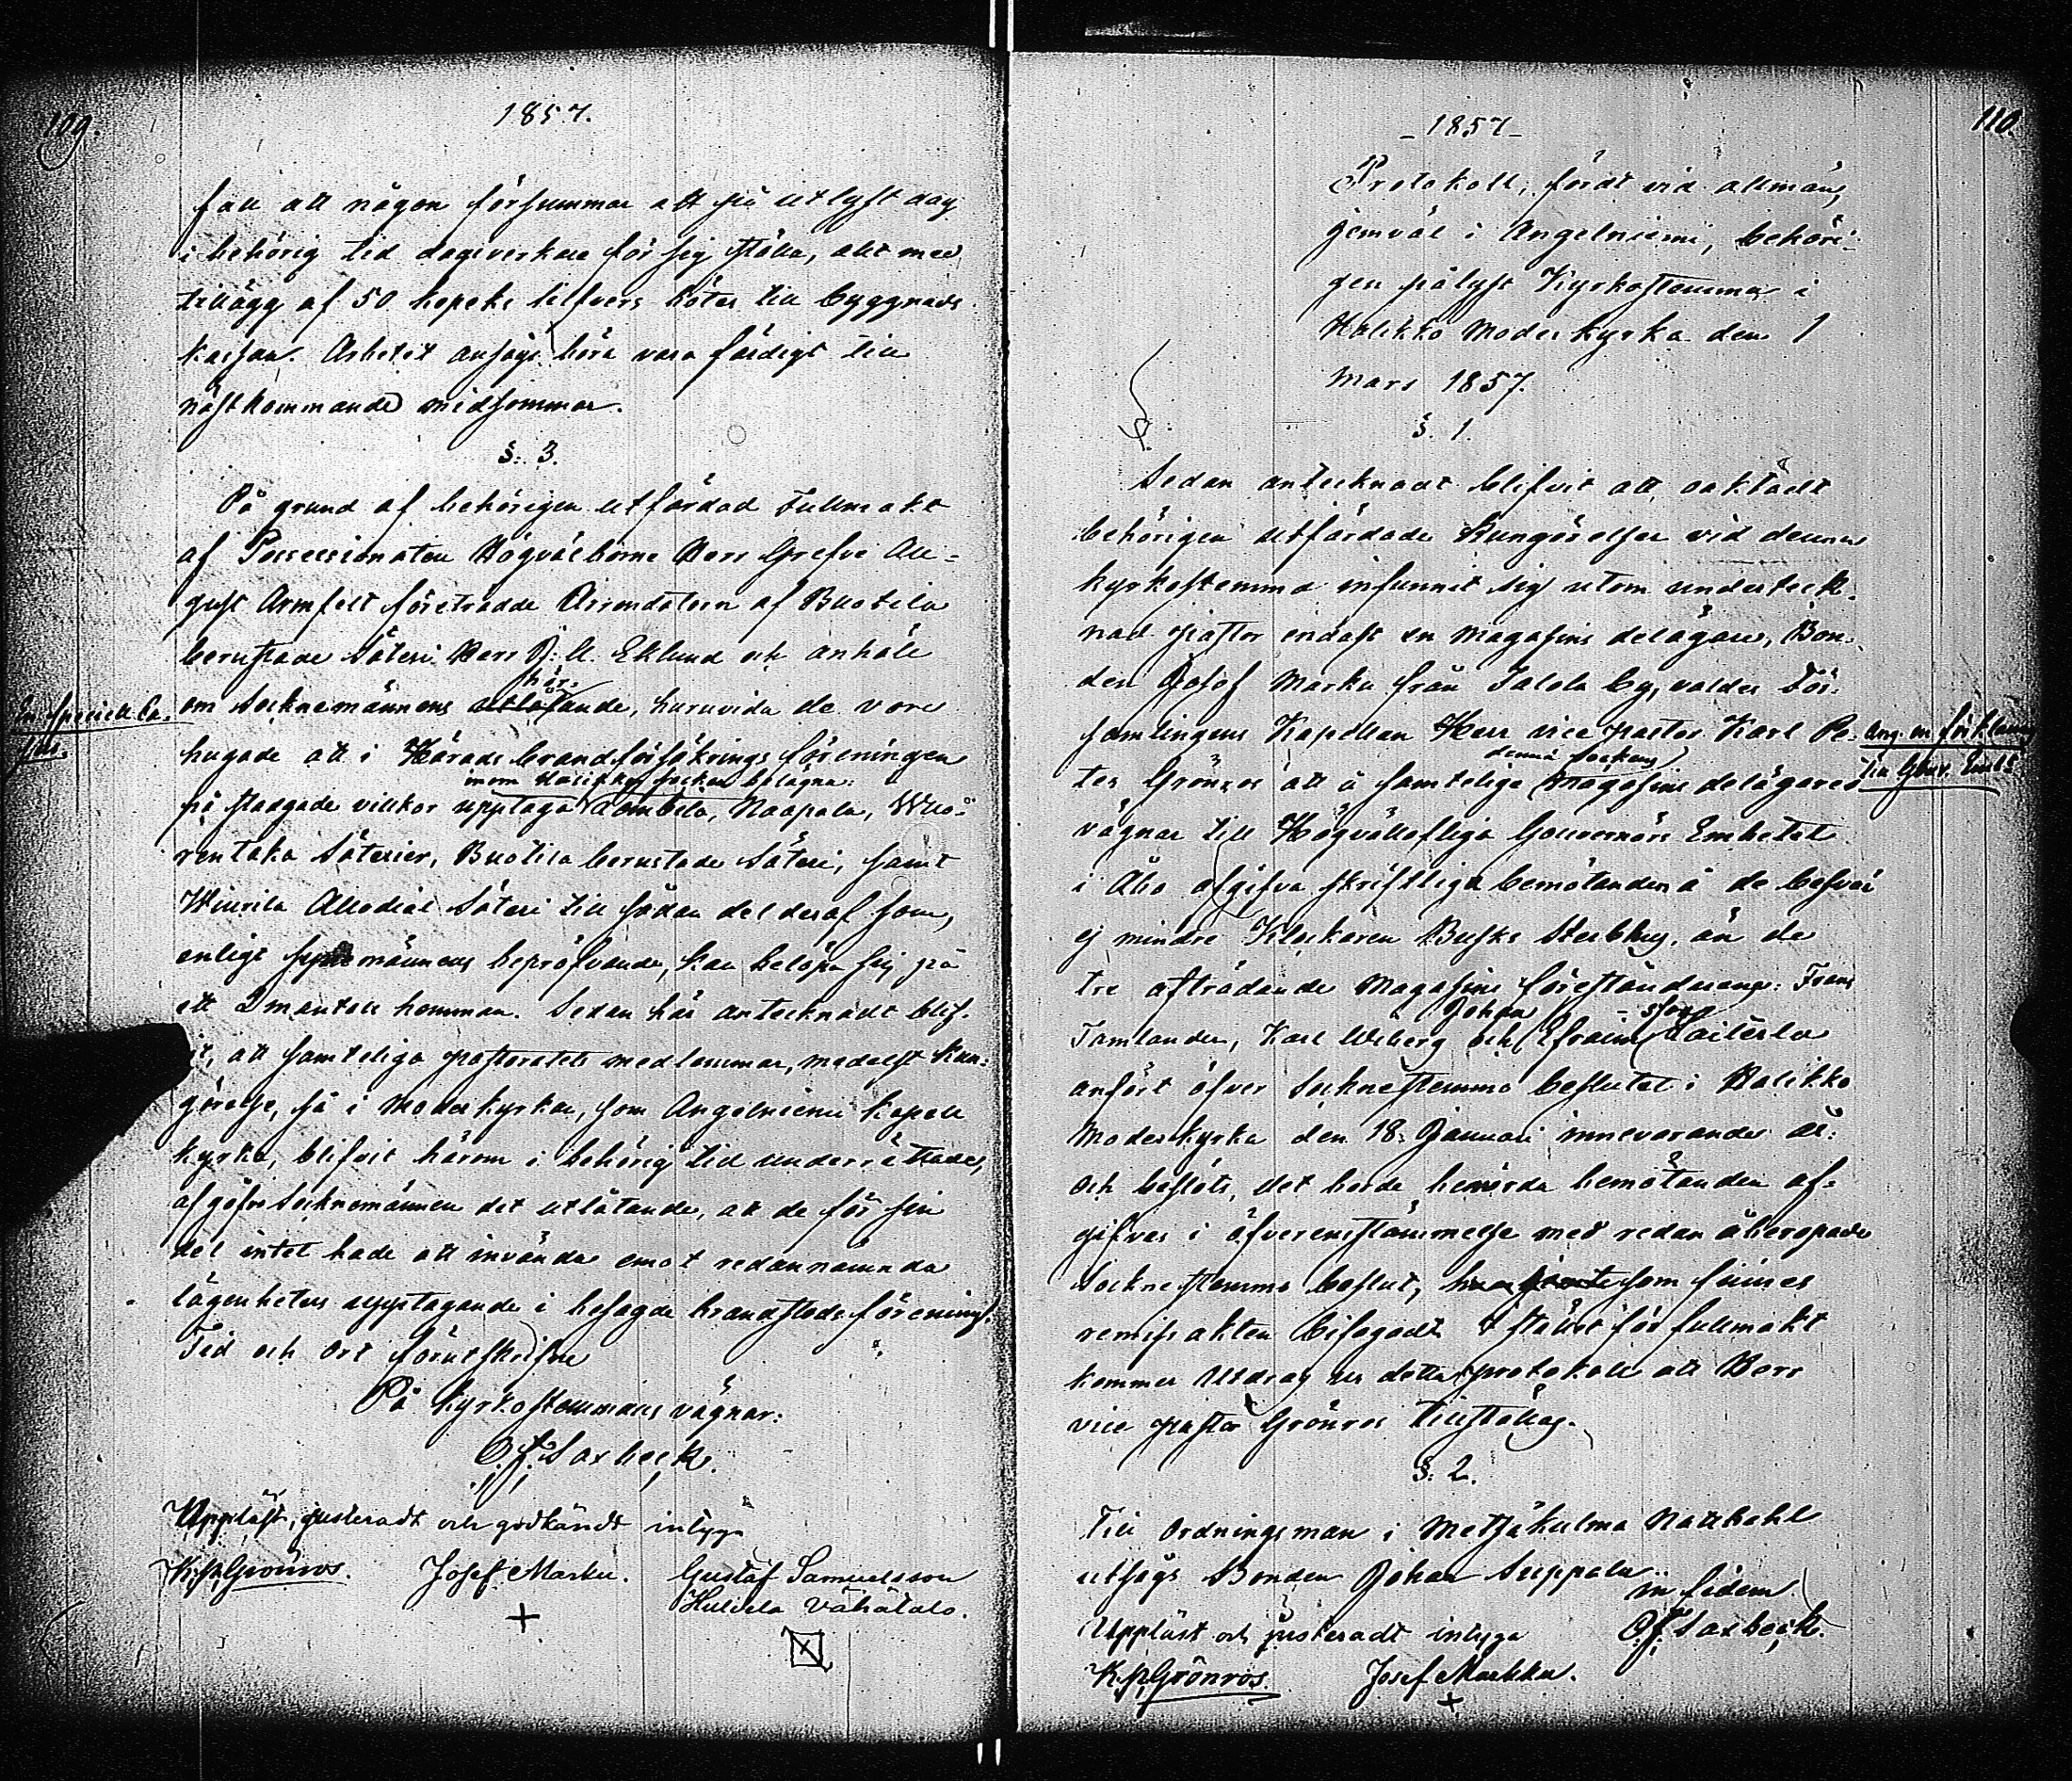 109.
1857.
fall att någon försummar att på utlyst dag
i behörig tid dagsverkare för sig ställa, allt med
tillägg af 50 kopeks silfvers böter till byggnads
kassan. Arbetet ansågs böra vara färdigt till
nästkommande midsommar.
§. 3.
På grund af behörigen utfärdad Fullmakt
af Possessionaten Högvälborne Herr Grefve Au-
gust Armfelt företrädde Arrendatorn af Buotila
berustade Säteri Herr J. U. Eklund och anhöll
här
om Socknemännens utlåtande, huruvida de vore
En speciell Ca-
sus.
hugade att i Härads brandförsäkrings föreningen
inom Halikko socken belägna:
på stadgade villkor upptaga Joensuu, Naapala, Wuo-
rentaka Säterier, Buotila berustade Säteri, samt
Wiurila Allodial Säteri till sådan del deraf som,
enligt synemännens bepröfvande, kan belöpa sig på
ett 2 mantals hemman. Sedan här antecknadt blif-
vit, att samteliga pastoratets medlemmar, medelst kun-
görelse, så i Moderkyrkan, som Angelniemi Kapell
kyrka, blifvit härom i behörig tid underrättade,
afgåfvo Socknemännen det utlåtande, att de för sin
del intet hade att invända emot redannämnda
lägenheters upptagande i besagde brandstodsförening.
Tid och Ort förutskrifne
På Kyrkostemmans vägnar:
O. J. Saxbeck.
Uppläst, justeradt och godkändt intyga
K. P. Grönros. Josef Marku. Gustaf Samuelsson
Hulvela Vähätalo.
110.
-1857-
Protokoll, fördt vid allmän,
jemväl i Angelniemi, behöri-
gen pålyst Kyrkostemma i
Halikko Moderkyrka den 1
Mars 1857.
§. 1.
Sedan antecknadt blifvit att oaktadt
behörigen utfärdade Kungörelser vid denna
kyrkostemma infunnit sig utom underteck-
nad pastor endast en Magasins delägare, Bon-
den Josef Marku från Talola by, valdes För-
samlingens Kapellan Herr vice pastor Karl Pe-
Ang. en förklaring
till Guv. Emb.
denna sockens
ter Grönros att å samtelige Magasins delägares
vägnar till Högvällofliga Gouvernörs Embetet
i Åbo afgifva skriftliga bemötanden å de besvär
ej mindre Klockaren Busks Sterbhus, än de
tre afträdande Magasins föreståndarena: Frans
Johan -sson
Tamlander, Karl Weberg och Efraim Laiterla
anfört öfver Socknestemmo beslutet i Halikko
Moderkyrka den 18. Januari innevarande år:
och beslöts, det borde berörda bemötanden af-
gifvas i öfverensstämmelse med redan åberopade
Socknestemmo beslut, som finnes
remiss akten bifogadt. I stället för fullmakt
kommer Utdrag ur detta protokoll att Herr
vice pastor Grönros tillställas.
§. 2.
Till Ordningsman i Metsäkulma Rättkahl
utsågs Bonden Johan Suppala.
in fidem
Uppläst och justeradt intyga O. J. Saxbeck.
K. P. Grönros. Josef Markku.